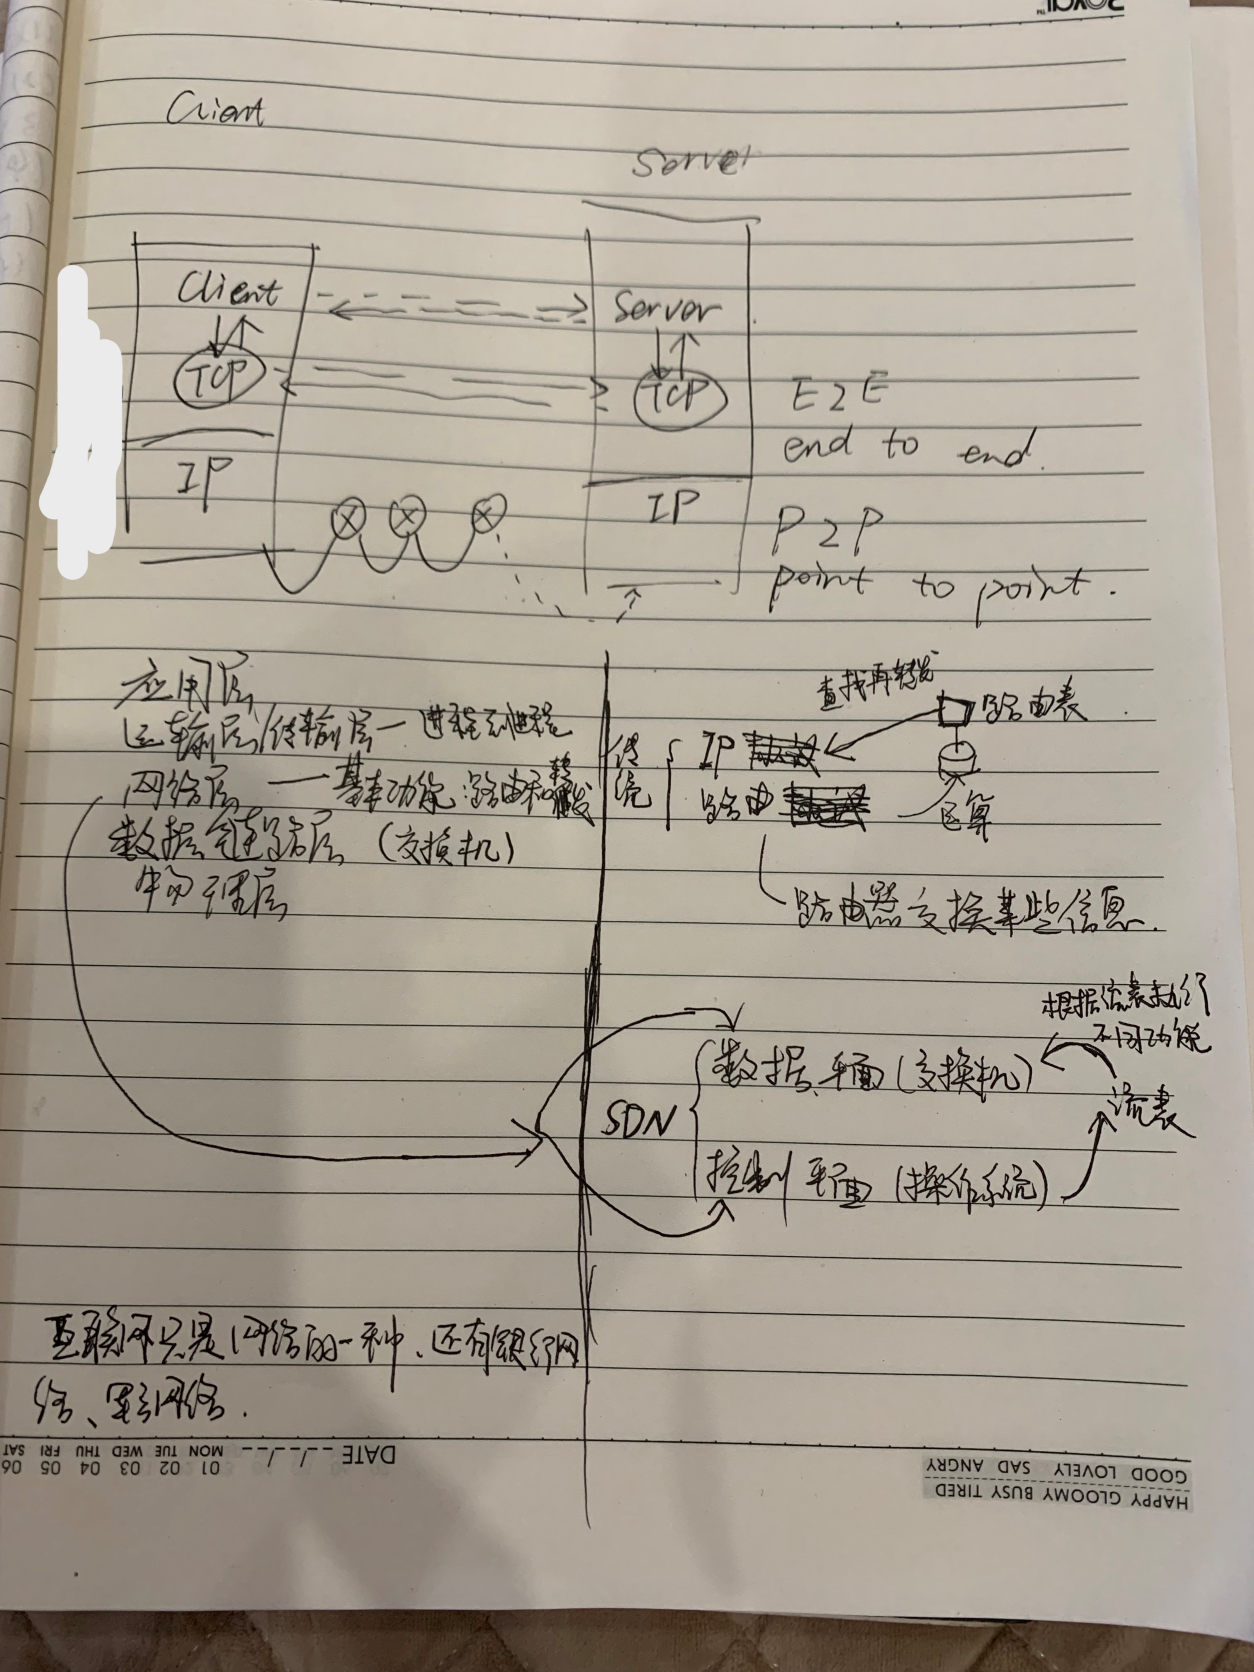 Client
Server
Client
Server
TCP
TCP
E2E
end to end.
IP
IP
P2P
point to point.
应用层
运输层/传输层—进程到进程
网络层——基本功能:路由和转发
数据链路层(交换机)
物理层
查找再转发
路由表
传统
IP
路由
运算
路由器交换某些信息.
根据流表执行
不同功能
数据平面(交换机)
流表
SDN
控制平面(操作系统)
互联网只是网络的一种、还有银行网
络、军方网络.
DATE __/__/__
MON TUE WED THU FRI SAT
01 02 03 04 05 06
GOOD LOVELY SAD ANGRY
HAPPY GLOOMY BUSY TIRED